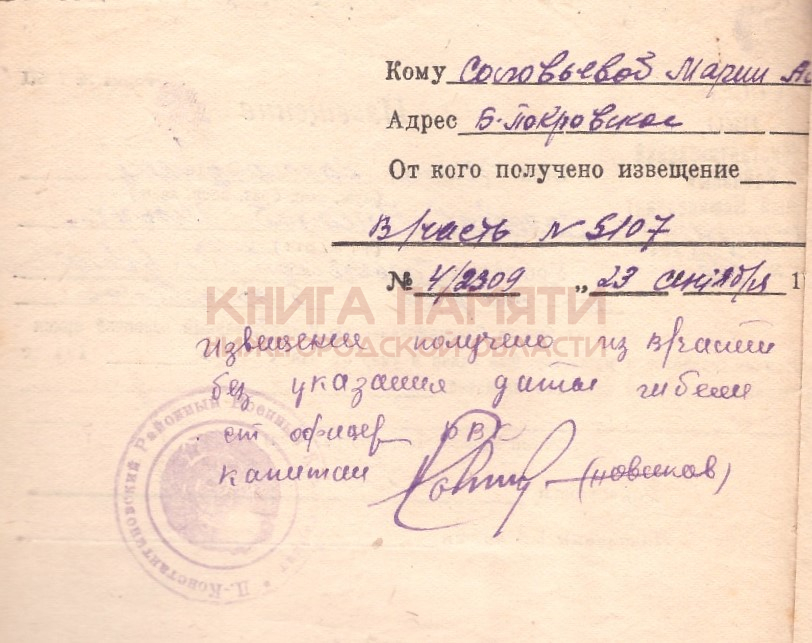 Кому Соловьевой Марии Ас
Адрес Б-Покровское
От кого получено извещение
В/часть N 5107
№ 4/2309 „ 23 сентября 1
КНИГА ПАМЯТИ
НИЖЕГОРОДСКОЙ ОБЛАСТИ
Извещение получено из В/части
без указания даты гибели
ст. офицер РВК
капитан (Новиков)
Д.-Константиновский Районный Военный